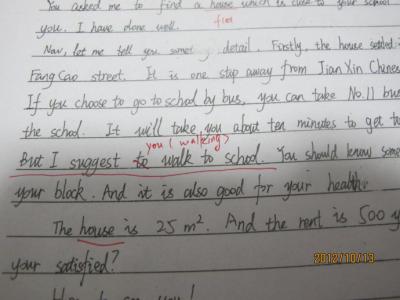 You asked me to find a house which is close to your school
you. I have done well.
Now, let me tell you some detail. Firstly, the house settled i
FangCao street. It is one stop away from JianXin Chines
If you choose to go to school by bus, you can take No.11 bus
the school. It will take you about ten minutes to get to
you (walking)
But I suggest to walk to school. You should know some
your block. And it is also good for your health.
The house is 25 m². And the rent is 500 y
your satisfied?
2012/10/13